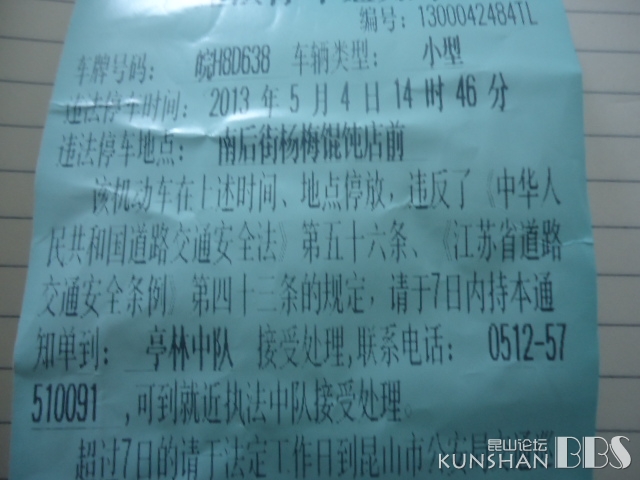 编号：1300042484TL
车牌号码： 皖H8D638 车辆类型： 小型
违法停车时间： 2013 年 5 月 4 日 14 时 46 分
违法停车地点： 南后街杨梅馄饨店前
该机动车在上述时间、地点停放，违反了《中华人
民共和国道路交通安全法》第五十六条、《江苏省道路
交通安全条例》第四十三条的规定，请于7日内持本通
知单到： 亭林中队 接受处理，联系电话： 0512-57
510091 ，可到就近执法中队接受处理。
超过7日的请于法定工作日到昆山市公安局交通
昆山论坛
KUNSHAN BBS